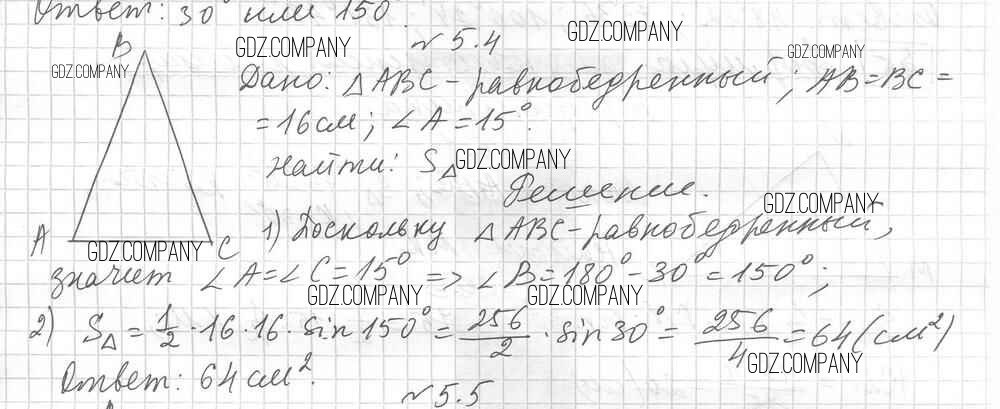 Ответ: 30° или 150°.
GDZ.COMPANY
№ 5.4
GDZ.COMPANY
B
GDZ.COMPANY
GDZ.COMPANY
Дано: △ABC - равнобедренный; AB=BC=
=16 см; ∠A=15°.
Найти: S△
GDZ.COMPANY
Решение.
GDZ.COMPANY
A
GDZ.COMPANY
C
1) Поскольку △ABC - равнобедренный,
значит ∠A=∠C=15° => ∠B=180°-30°=150°;
GDZ.COMPANY
GDZ.COMPANY
2) S△ = 1/2 · 16 · 16 · sin 150° = 256/2 · sin 30° = 256/4 = 64 (см²)
GDZ.COMPANY
Ответ: 64 см².
№ 5.5